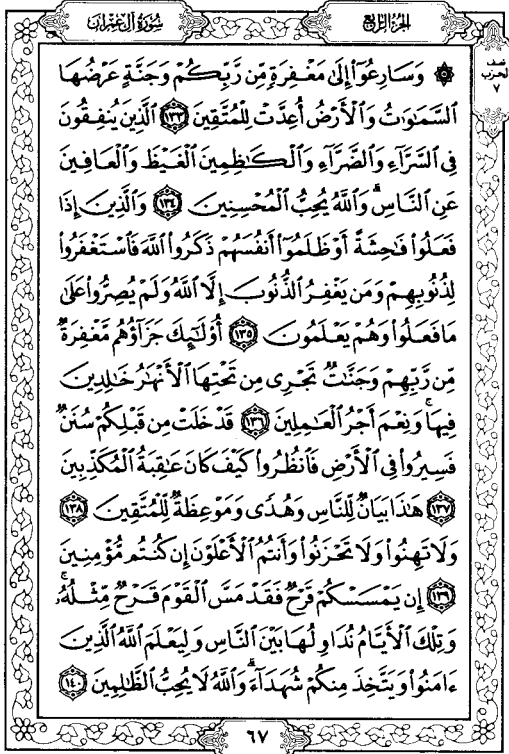 سُورَةُ آلِ عِمْرَان
الجزء الرابع
نصف
الحزب
٧
۞ وَسَارِعُوٓا۟ إِلَىٰ مَغْفِرَةٍ مِّن رَّبِّكُمْ وَجَنَّةٍ عَرْضُهَا
ٱلسَّمَـٰوَٰتُ وَٱلْأَرْضُ أُعِدَّتْ لِلْمُتَّقِينَ ١٣٣ ٱلَّذِينَ يُنفِقُونَ
فِى ٱلسَّرَّآءِ وَٱلضَّرَّآءِ وَٱلْكَـٰظِمِينَ ٱلْغَيْظَ وَٱلْعَافِينَ
عَنِ ٱلنَّاسِ ۗ وَٱللَّهُ يُحِبُّ ٱلْمُحْسِنِينَ ١٣٤ وَٱلَّذِينَ إِذَا
فَعَلُوا۟ فَـٰحِشَةً أَوْ ظَلَمُوٓا۟ أَنفُسَهُمْ ذَكَرُوا۟ ٱللَّهَ فَٱسْتَغْفَرُوا۟
لِذُنُوبِهِمْ وَمَن يَغْفِرُ ٱلذُّنُوبَ إِلَّا ٱللَّهُ وَلَمْ يُصِرُّوا۟ عَلَىٰ
مَا فَعَلُوا۟ وَهُمْ يَعْلَمُونَ ١٣٥ أُو۟لَـٰٓئِكَ جَزَآؤُهُم مَّغْفِرَةٌ
مِّن رَّبِّهِمْ وَجَنَّـٰتٌ تَجْرِى مِن تَحْتِهَا ٱلْأَنْهَـٰرُ خَـٰلِدِينَ
فِيهَا ۚ وَنِعْمَ أَجْرُ ٱلْعَـٰمِلِينَ ١٣٦ قَدْ خَلَتْ مِن قَبْلِكُمْ سُنَنٌ
فَسِيرُوا۟ فِى ٱلْأَرْضِ فَٱنظُرُوا۟ كَيْفَ كَانَ عَـٰقِبَةُ ٱلْمُكَذِّبِينَ
١٣٧ هَـٰذَا بَيَانٌ لِّلنَّاسِ وَهُدًى وَمَوْعِظَةٌ لِّلْمُتَّقِينَ ١٣٨
وَلَا تَهِنُوا۟ وَلَا تَحْزَنُوا۟ وَأَنتُمُ ٱلْأَعْلَوْنَ إِن كُنتُم مُّؤْمِنِينَ
١٣٩ إِن يَمْسَسْكُمْ قَرْحٌ فَقَدْ مَسَّ ٱلْقَوْمَ قَرْحٌ مِّثْلُهُۥ ۚ
وَتِلْكَ ٱلْأَيَّامُ نُدَاوِلُهَا بَيْنَ ٱلنَّاسِ وَلِيَعْلَمَ ٱللَّهُ ٱلَّذِينَ
ءَامَنُوا۟ وَيَتَّخِذَ مِنكُمْ شُهَدَآءَ ۗ وَٱللَّهُ لَا يُحِبُّ ٱلظَّـٰلِمِينَ ١٤٠
٦٧